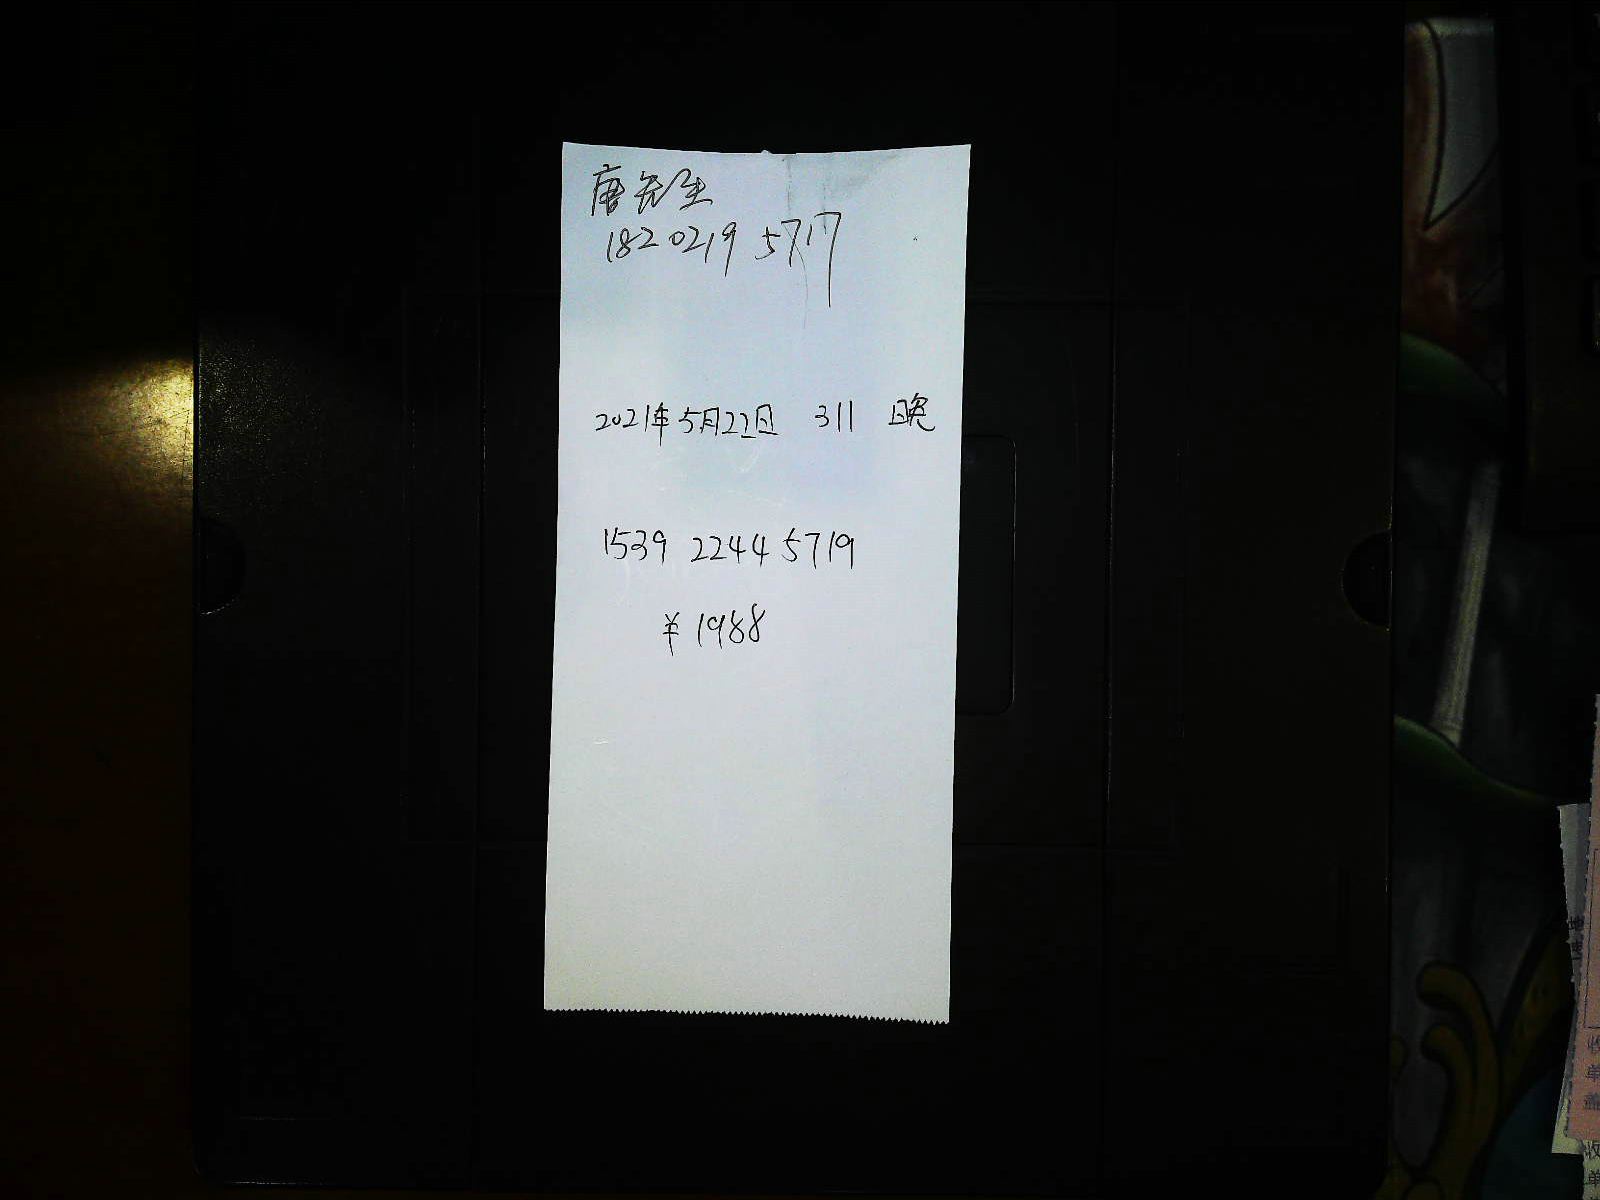 唐先生
182 0219 5717
2021年5月22日 311 晚
1539 2244 5719
¥1988
收
单